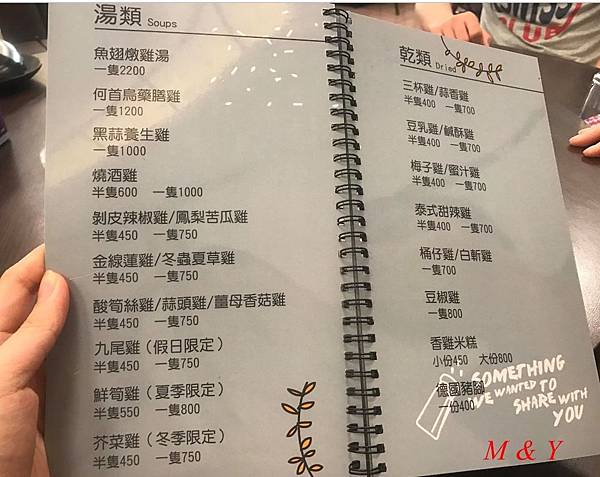 湯類 Soups
魚翅燉雞湯
一隻2200
何首烏藥膳雞
一隻1200
黑蒜養生雞
一隻1000
燒酒雞
半隻600 一隻1000
剝皮辣椒雞/鳳梨苦瓜雞
半隻450 一隻750
金線蓮雞/冬蟲夏草雞
半隻450 一隻750
酸筍絲雞/蒜頭雞/薑母香菇雞
半隻450 一隻750
九尾雞（假日限定）
半隻450 一隻750
鮮筍雞（夏季限定）
半隻550 一隻800
芥菜雞（冬季限定）
半隻450 一隻750
乾類 Dried
三杯雞/蒜香雞
半隻400 一隻700
豆乳雞/鹹酥雞
半隻400 一隻700
梅子雞/蜜汁雞
半隻400 一隻700
泰式甜辣雞
半隻400 一隻700
桶仔雞/白斬雞
一隻700
豆椒雞
一隻800
香雞米糕
小份450 大份800
德國豬腳
一份400
SOMETHING
WE WANTED TO
SHARE WITH
YOU
M & Y